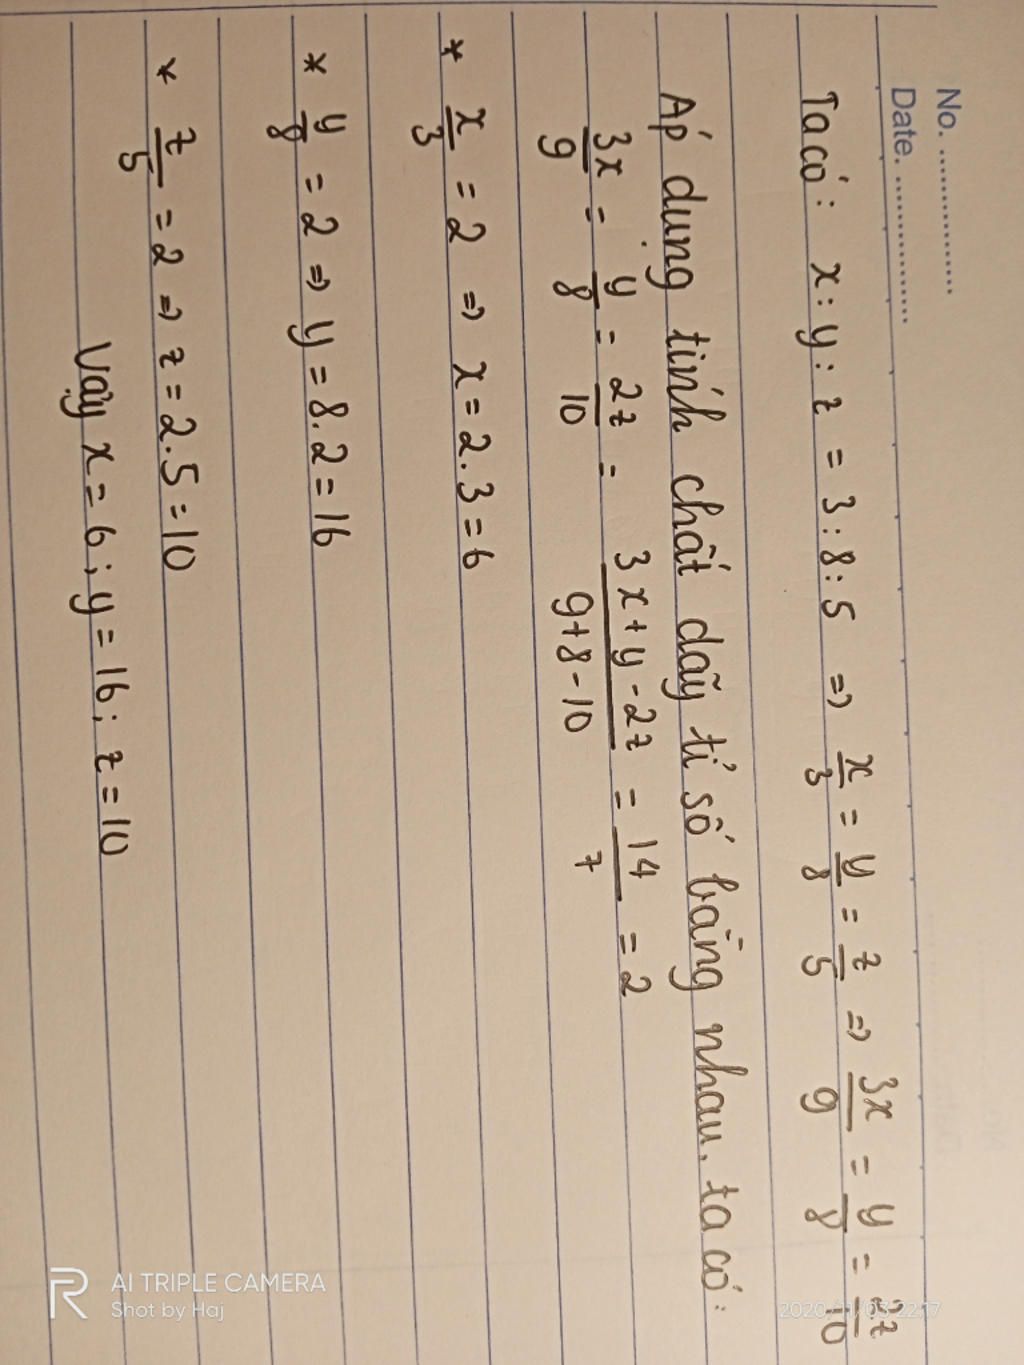 No. ................
Date. ................
Ta có: x : y : z = 3 : 8 : 5 => x/3 = y/8 = z/5 => 3x/9 = y/8 = 2z/10
Áp dụng tính chất dãy tỉ số bằng nhau, ta có:
3x/9 = y/8 = 2z/10 = (3x + y - 2z)/(9 + 8 - 10) = 14/7 = 2
* x/3 = 2 => x = 2.3 = 6
* y/8 = 2 => y = 8.2 = 16
* z/5 = 2 => z = 2.5 = 10
Vậy x = 6; y = 16; z = 10
AI TRIPLE CAMERA
Shot by Haj
2020/11/03 22:17